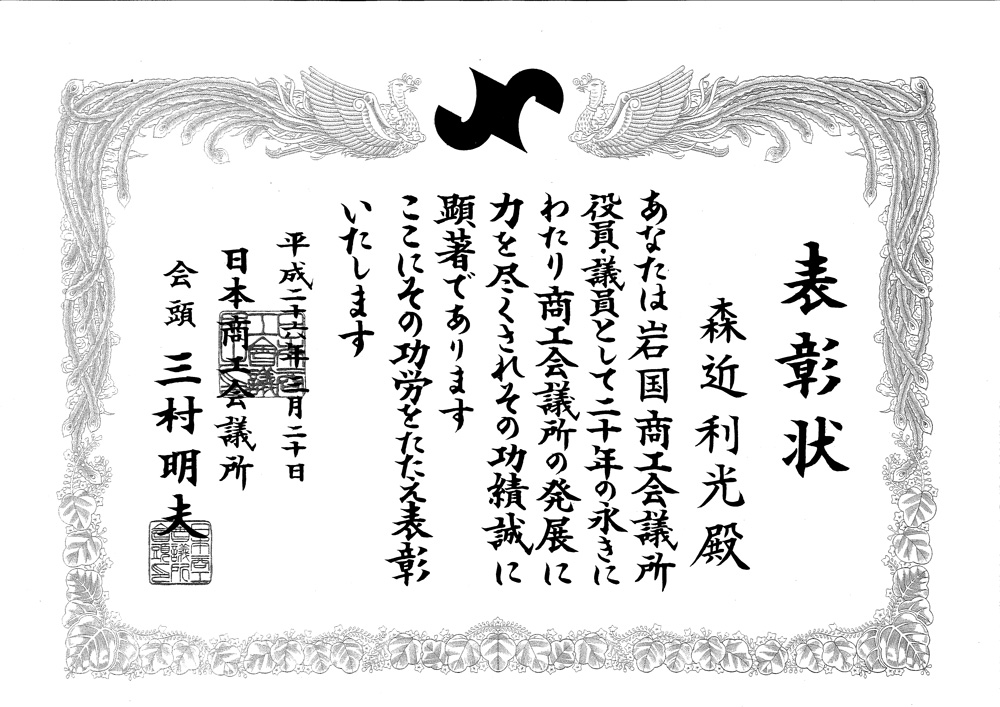 表彰状
森近利光殿
あなたは岩国商工会議所
役員・議員として二十年の永きに
わたり商工会議所の発展に
力を尽くされその功績誠に
顕著であります
ここにその功労をたたえ表彰
いたします
平成二十六年三月二十日
日本商工会議所
会頭 三村明夫